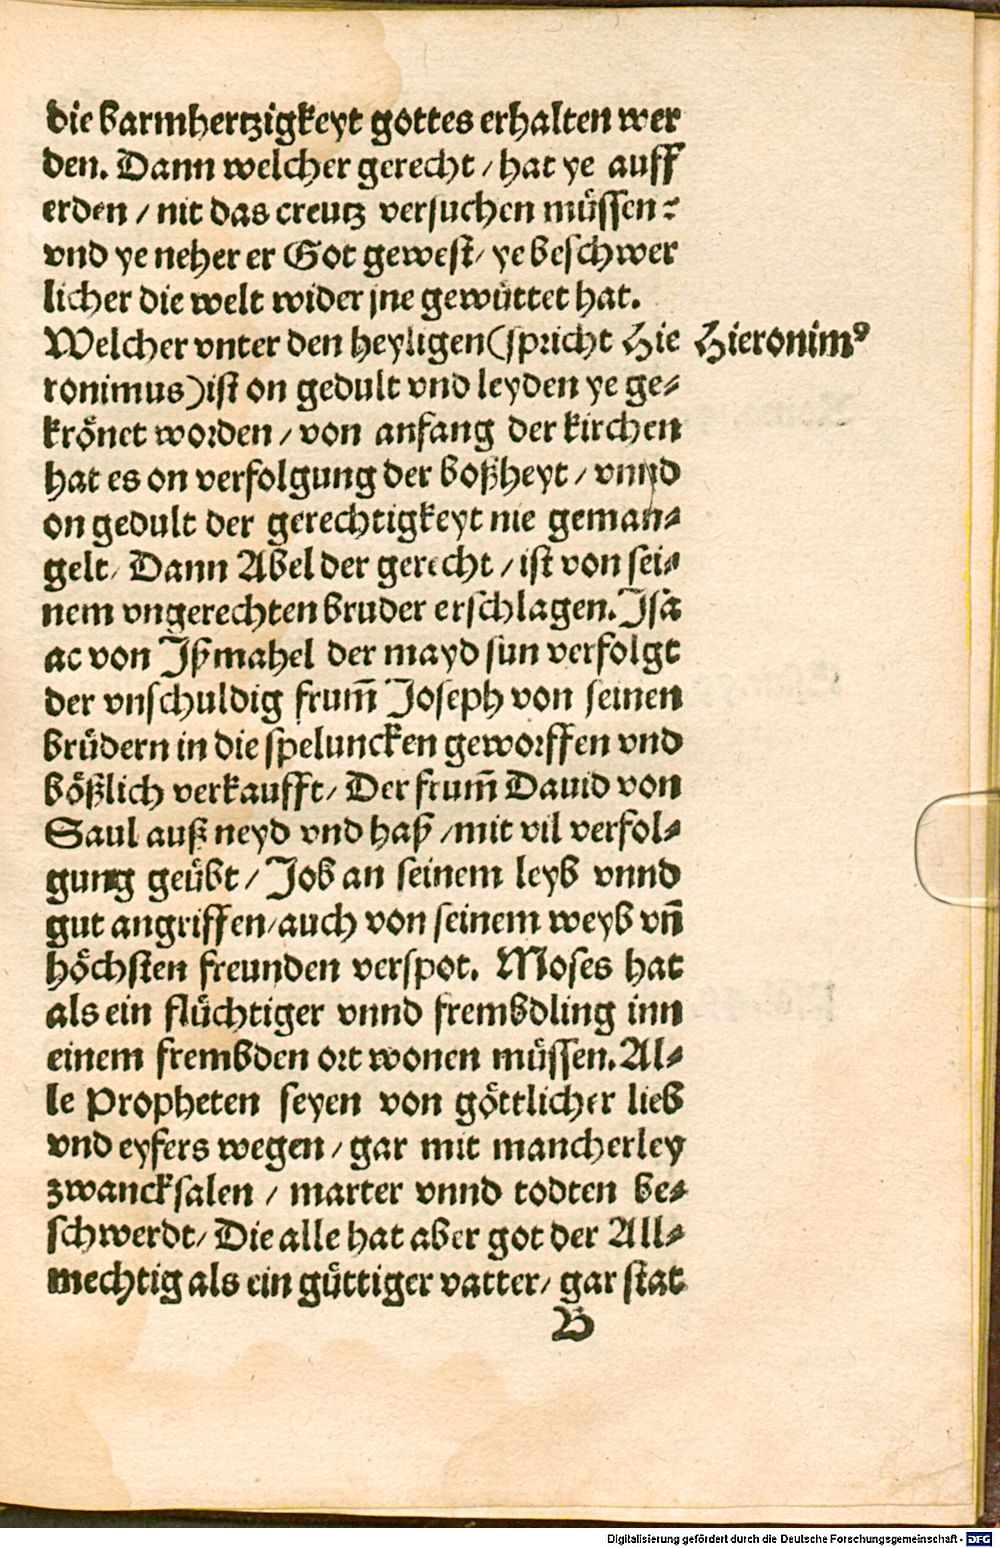 die barmhertzigkeyt gottes erhalten wer
den. Dann welcher gerecht / hat ye auff
erden / nit das creutz versuchen müssen:
vnd ye neher er Got gewest / ye beschwer
licher die welt wider jne gewüttet hat.
Welcher vnter den heyligen (spricht Hie
Hieronimꝰ
ronimus) ist on gedult vnd leyden ye ge⸗
krönet worden / von anfang der kirchen
hat es on verfolgung der boßheyt / vnnd
on gedult der gerechtigkeyt nie geman⸗
gelt / Dann Abel der gerecht / ist von sei⸗
nem vngerechten bruder erschlagen. Isa
ac von Ißmahel der mayd sun verfolgt
der vnschuldig frum̄ Joseph von seinen
brüdern in die speluncken geworffen vnd
bößlich verkaufft / Der frum̄ Dauid von
Saul auß neyd vnd haß / mit vil verfol⸗
gung geübt / Job an seinem leyb vnnd
gut angriffen / auch von seinem weyb vn̄
höchsten freunden verspot. Moses hat
als ein flüchtiger vnnd frembdling inn
einem frembden ort wonen müssen. Al⸗
le Propheten seyen von göttlicher lieb
vnd eyfers wegen / gar mit mancherley
zwancksalen / marter vnnd todten be⸗
schwerdt / Die alle hat aber got der All⸗
mechtig als ein güttiger vatter / gar stat
B
Digitalisierung gefördert durch die Deutsche Forschungsgemeinschaft - DFG